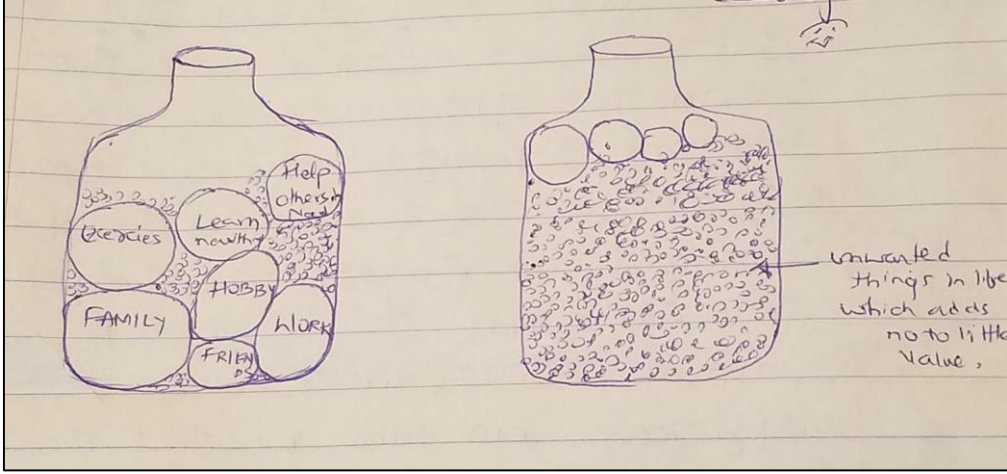 Help
others in
Need
Exercies
Learn
newthg
HOBBY
FAMILY
WORK
FRIEN
DS
unwanted
things in life
which adds
no to little
value.